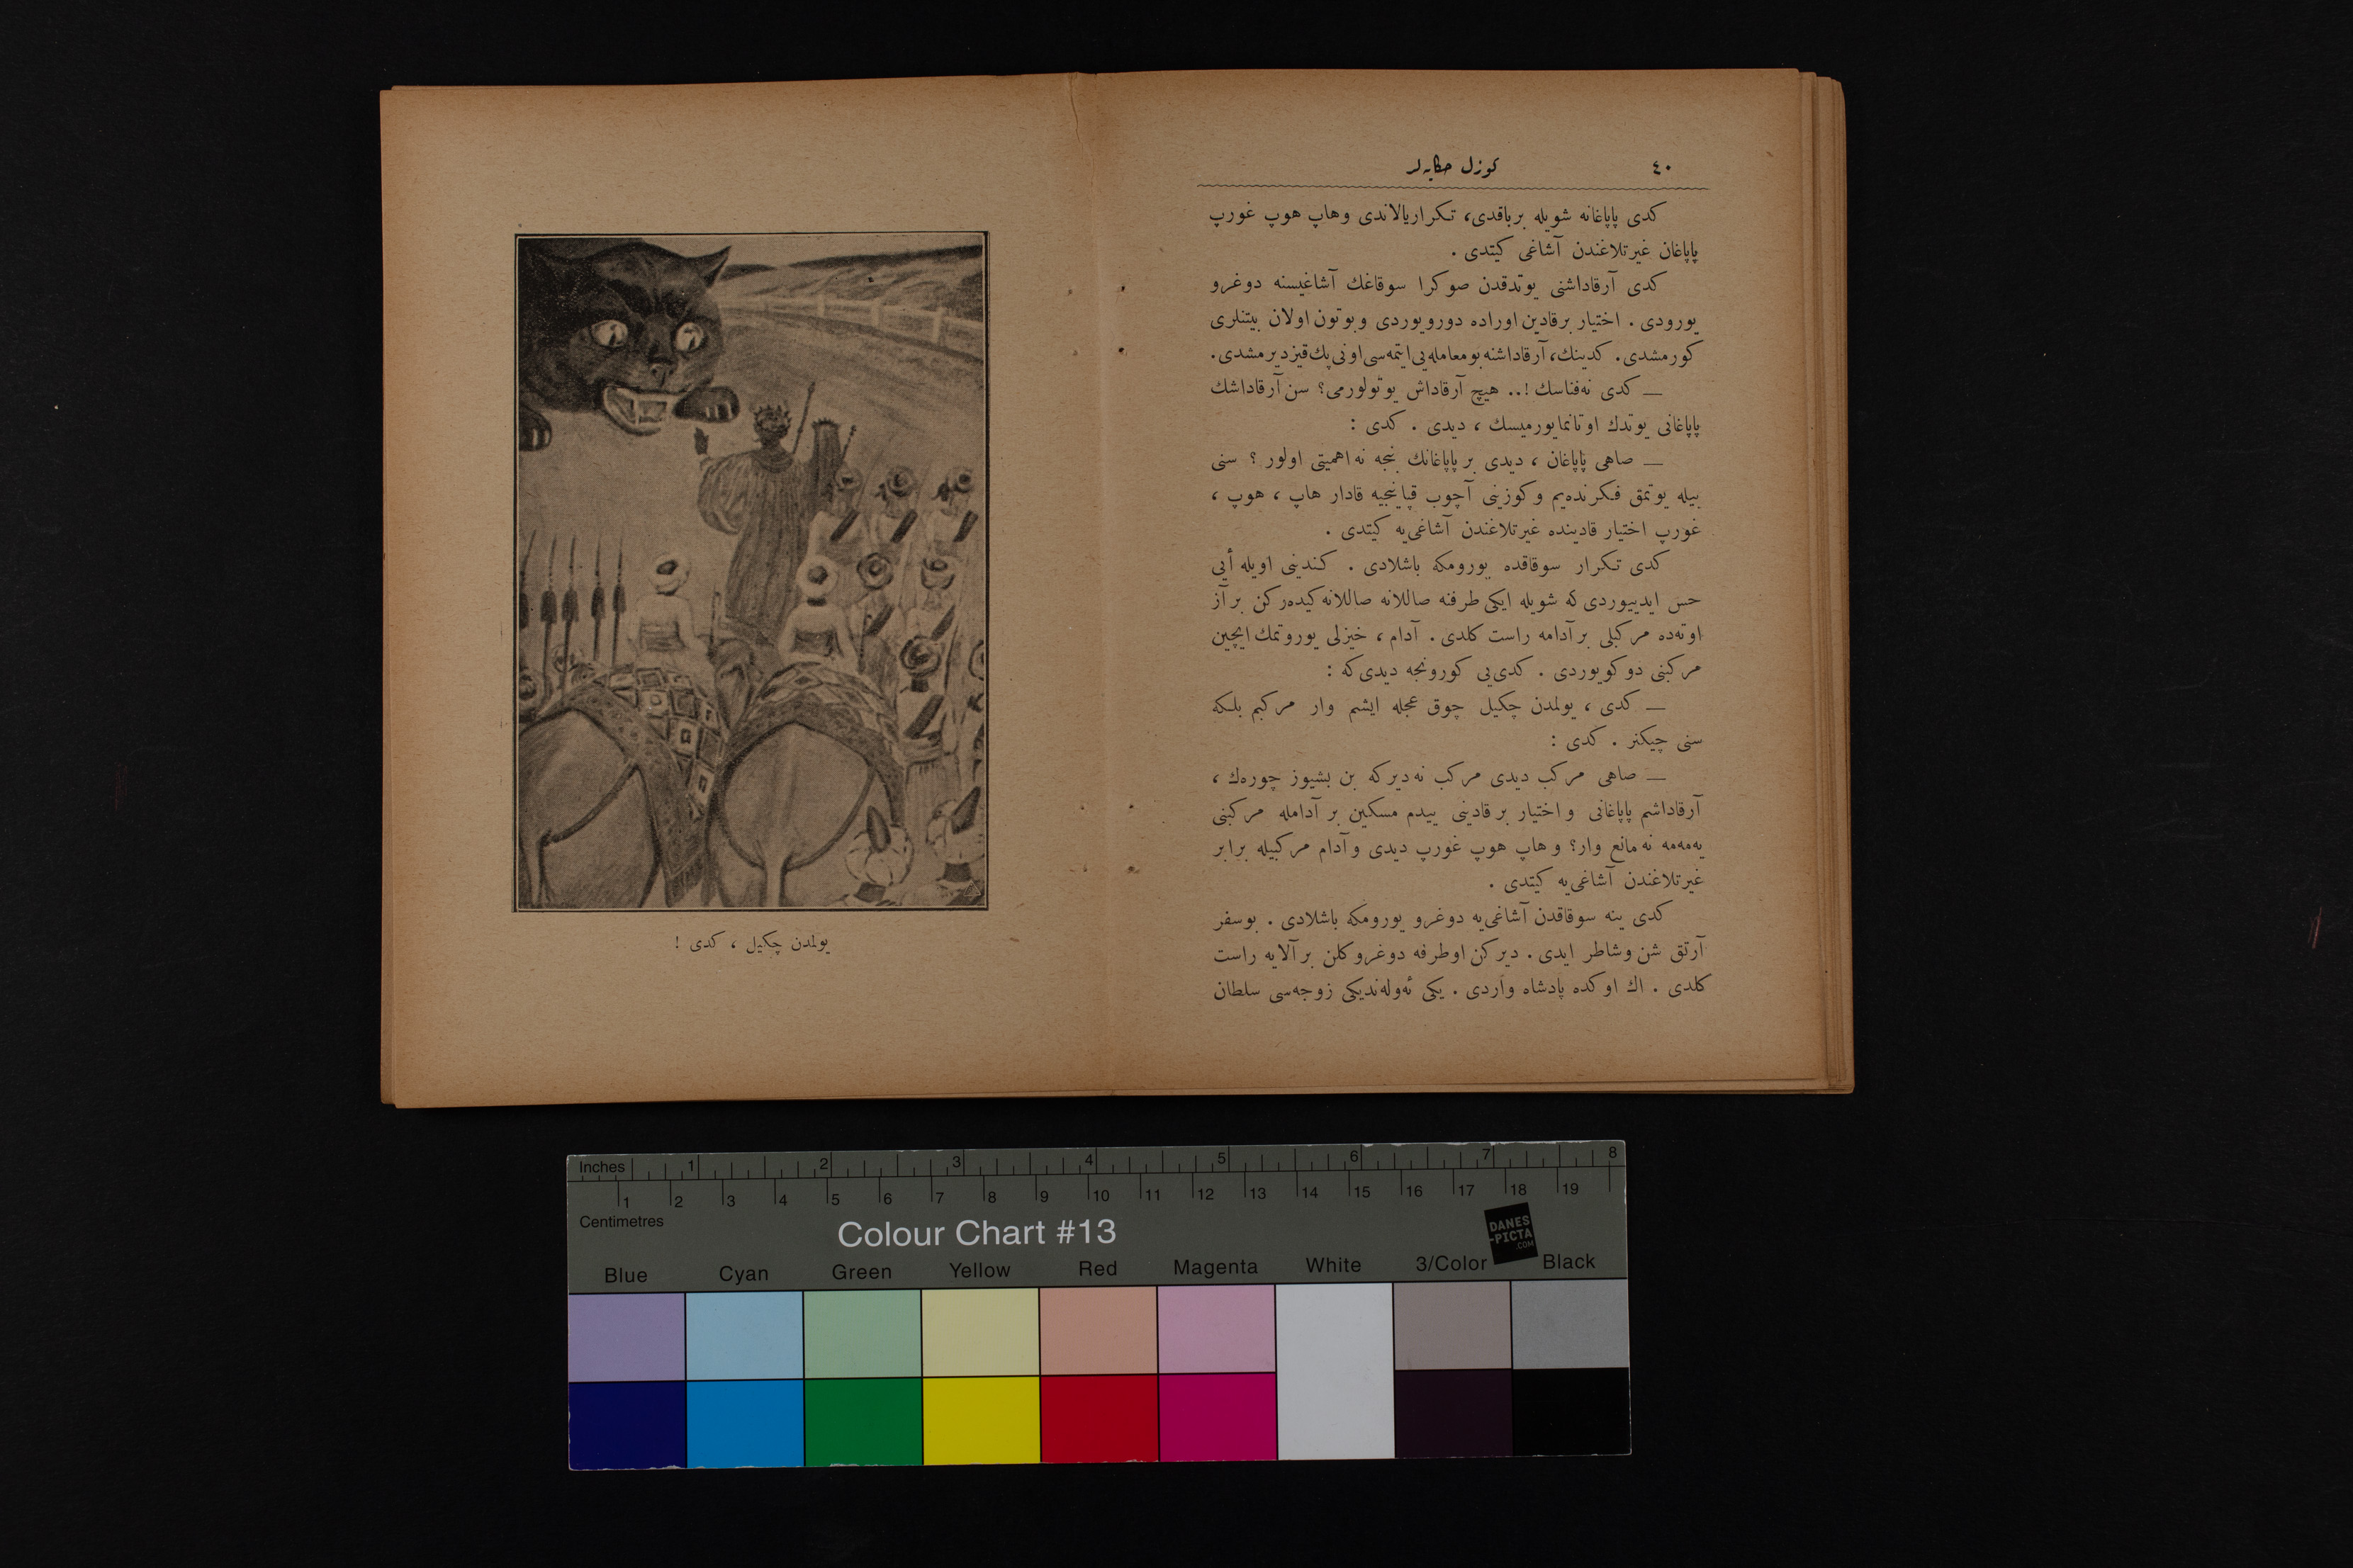 ٤٠
كوزل حكایه‌لر
كدی پاپاغانه شویله برباقدی، تكراریالاندی وهاپ هوپ غورپ
پاپاغان غیرتلاغندن آشاغی كیتدی .
كدی آرقاداشنی یوتدقدن صوكرا سوقاغك آشاغیسنه دوغرو
یورودی . اختیار برقادین اوراده دورویوردی وبوتون اولان بیتنلری
كورمشدی. كدینك، آرقاداشنه بومعامله‌یی ایتمه‌سی اونی پك قیزدیرمشدی.
— كدی نه‌فناسك !.. هیچ آرقاداش یوتولورمی؟ سن آرقاداشك
پاپاغانی یوتدك اوتانمایورمیسك ، دیدی . كدی :
— صاهی پاپاغان ، دیدی بر پاپاغانك بنجه نه اهمیتی اولور ؟ سنی
بیله یوتمق فكرنده‌یم وكوزینی آچوب قپاینجیه قادار هاپ ، هوپ ،
غورپ اختیار قادینده غیرتلاغندن آشاغی‌یه كیتدی .
كدی تكرار سوقاقده یورومكه باشلادی . كندینی اویله أیی
حس ایدییوردی كه شویله ایكی طرفنه صاللانه صاللانه كیده‌ركن برآز
اوته‌ده مركبلی برآدامه راست كلدی. آدام ، خیزلی یوروتمك ایچین
مركبنی دوكویوردی . كدی‌یی كورونجه دیدی‌كه :
— كدی ، یولمدن چكیل چوق عجله ایشم وار مركبم بلكه
سنی چیكنر . كدی :
— صاهی مركب دیدی مركب نه‌دیركه بن بشیوز چوره‌ك ،
آرقاداشم پاپاغانی و اختیار برقادینی ییدم مسكین بر آدامله مركبنی
یه‌مه‌مه نه‌مانع وار؟ وهاپ هوپ غورپ دیدی وآدام مركبیله برابر
غیرتلاغندن آشاغی‌یه كیتدی .
كدی ینه سوقاقدن آشاغی‌یه دوغرو یورومكه باشلادی . بوسفر
آرتق شن وشاطر ایدی . دیركن اوطرفه دوغروكلن برآلایه راست
كلدی . اك اوكده پادشاه واردی . یكی ئه‌وله‌ندیكی زوجه‌سی سلطان
یولمدن چكیل ، كدی !
Inches 1 2 3 4 5 6 7 8
1 2 3 4 5 6 7 8 9 10 11 12 13 14 15 16 17 18 19
Centimetres
Colour Chart #13
DANES
-PICTA
.COM
Blue Cyan Green Yellow Red Magenta White 3/Color Black